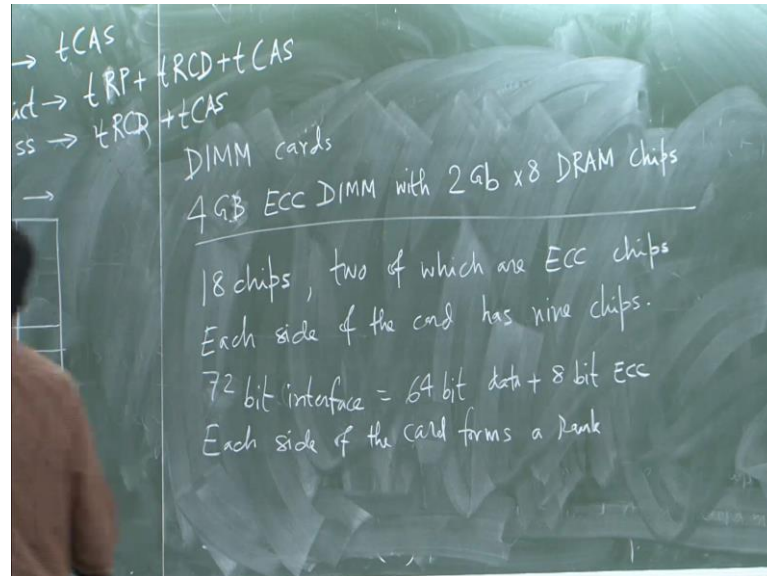 → tCAS
ict → tRP + tRCD + tCAS
ss → tRCD + tCAS
→
DIMM cards
4GB ECC DIMM with 2Gb x8 DRAM chips
18 chips, two of which are ECC chips
Each side of the card has nine chips.
72 bit interface = 64 bit data + 8 bit ECC
Each side of the card forms a Rank